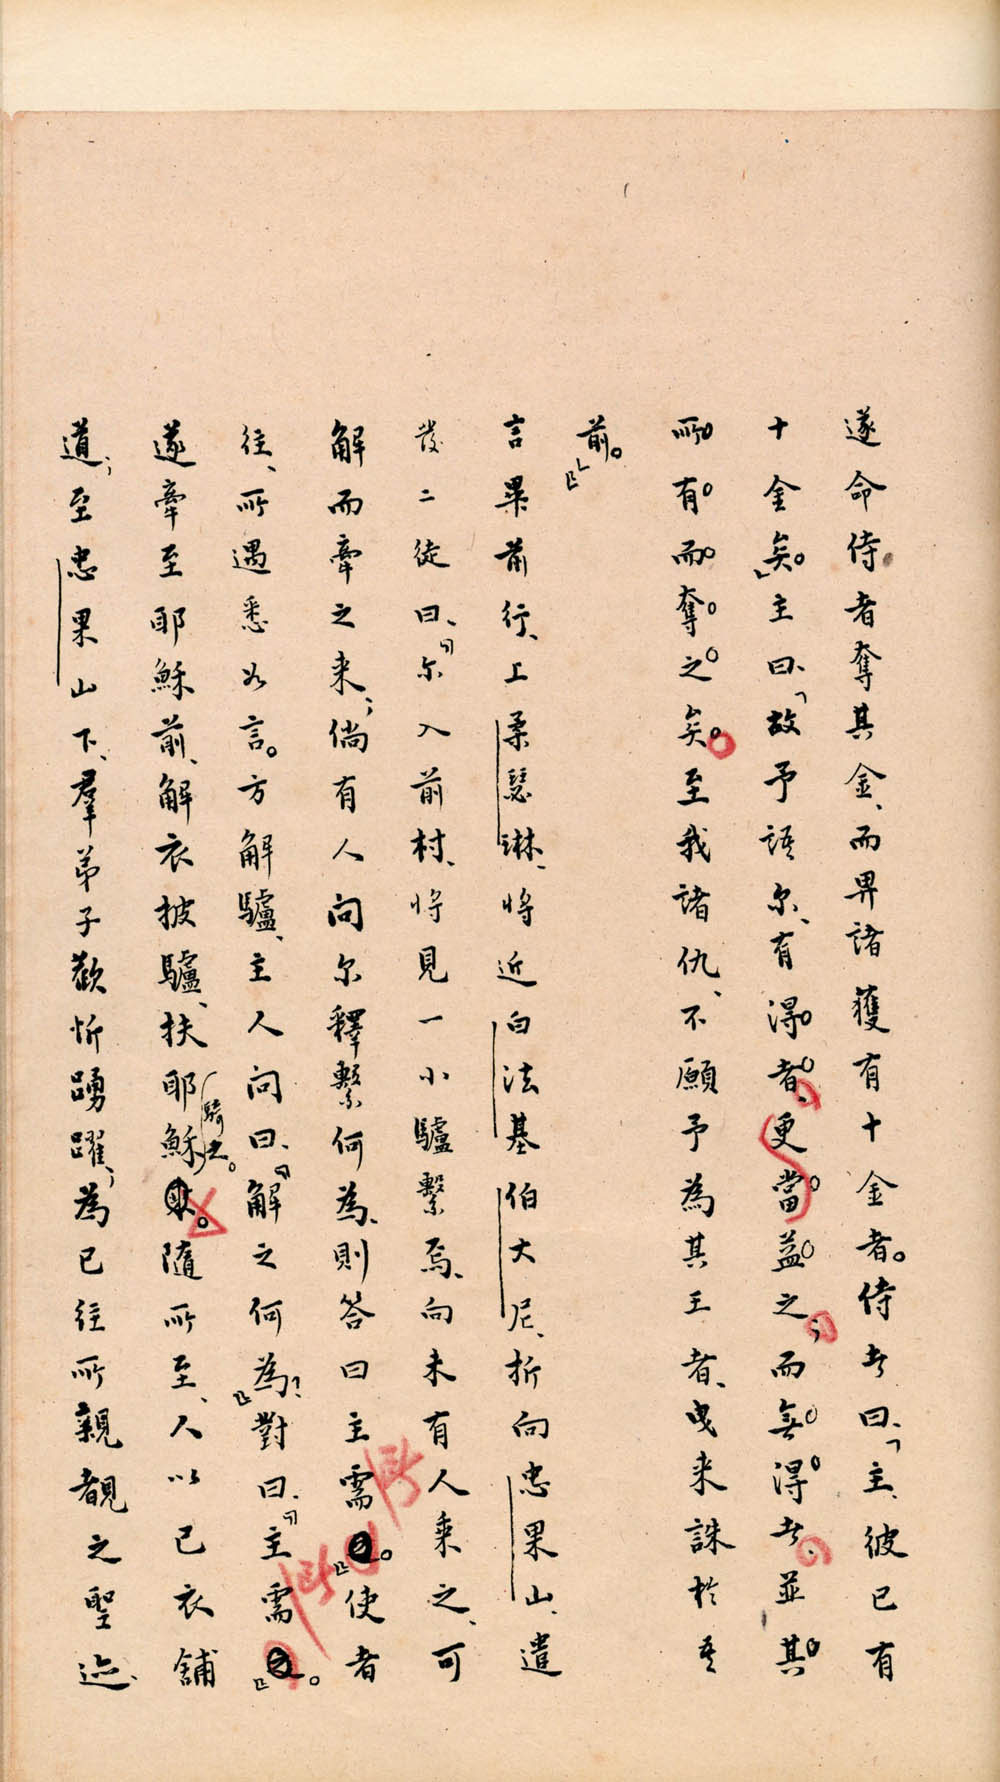 遂命侍者奪其金、而畀諸獲有十金者。侍者曰、「主、彼已有
十金矣。」主曰、「故予語尔、有得者、更當益之；而無得者、並其
所有而奪之矣。至我諸仇、不願予為其王者、曳来誅於吾
前。」
言畢前行、上柔瑟琳、將近白法基伯大尼、折向忠果山、遣
發二徒曰、『尔入前村、將見一小驢繫焉、向未有人乘之、可
解而牽之来；倘有人問尔釋繫何為、則答曰主需之。』使者
往、所遇悉如言。方解驢、主人問曰、『解之何為？』對曰、『主需之』。
遂牽至耶穌前、解衣披驢、扶耶穌騎之。隨所至、人以已衣舖
道；至忠果山下、羣弟子歡忻踴躍、為已往所親覩之聖迹、